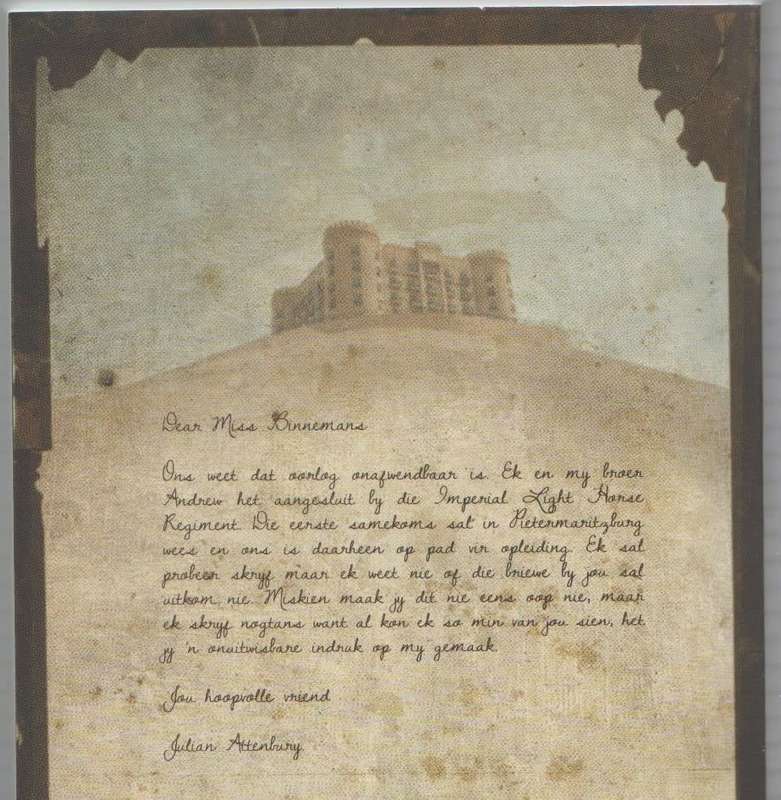 Dear Miss Binnemans
Ons weet dat oorlog onafwendbaar is. Ek en my broer
Andrew het aangesluit by die Imperial Light Horse
Regiment. Die eerste samekoms sal in Pietermaritzburg
wees en ons is daarheen op pad vir opleiding. Ek sal
probeer skryf maar ek weet nie of die briewe by jou sal
uitkom nie. Miskien maak jy dit nie eens oop nie, maar
ek skryf nogtans want al kon ek so min van jou sien, het
jy 'n onuitwisbare indruk op my gemaak.
Jou hoopvolle vriend
Julian Attenbury.